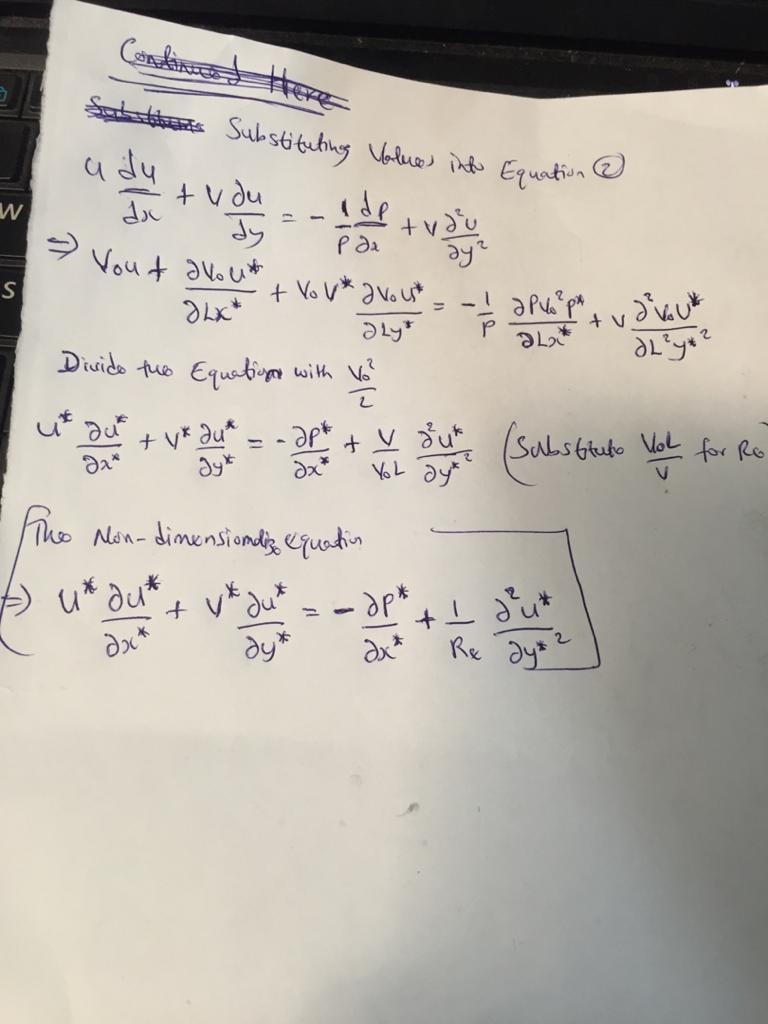 Continued Here
Substituting Values into Equation ②
u du/dx + v ∂u/dy = - 1/ρ dp/∂x + ν ∂²u/∂y²
⇒ V₀u + ∂V₀u*/∂Lx* + V₀V* ∂V₀u*/∂Ly* = -1/ρ ∂ρV₀²p*/∂Lx* + ν ∂²V₀u*/∂L²y*²
Divide the Equation with V₀²/2
u* ∂u*/∂x* + v* ∂u*/∂y* = - ∂p*/∂x* + ν/V₀L ∂²u*/∂y*² (Substitute V₀L/ν for Re
The Non-dimensionalize equation
⇒ u* ∂u*/∂x* + v* ∂u*/∂y* = - ∂p*/∂x* + 1/Re ∂²u*/∂y*²
W
S